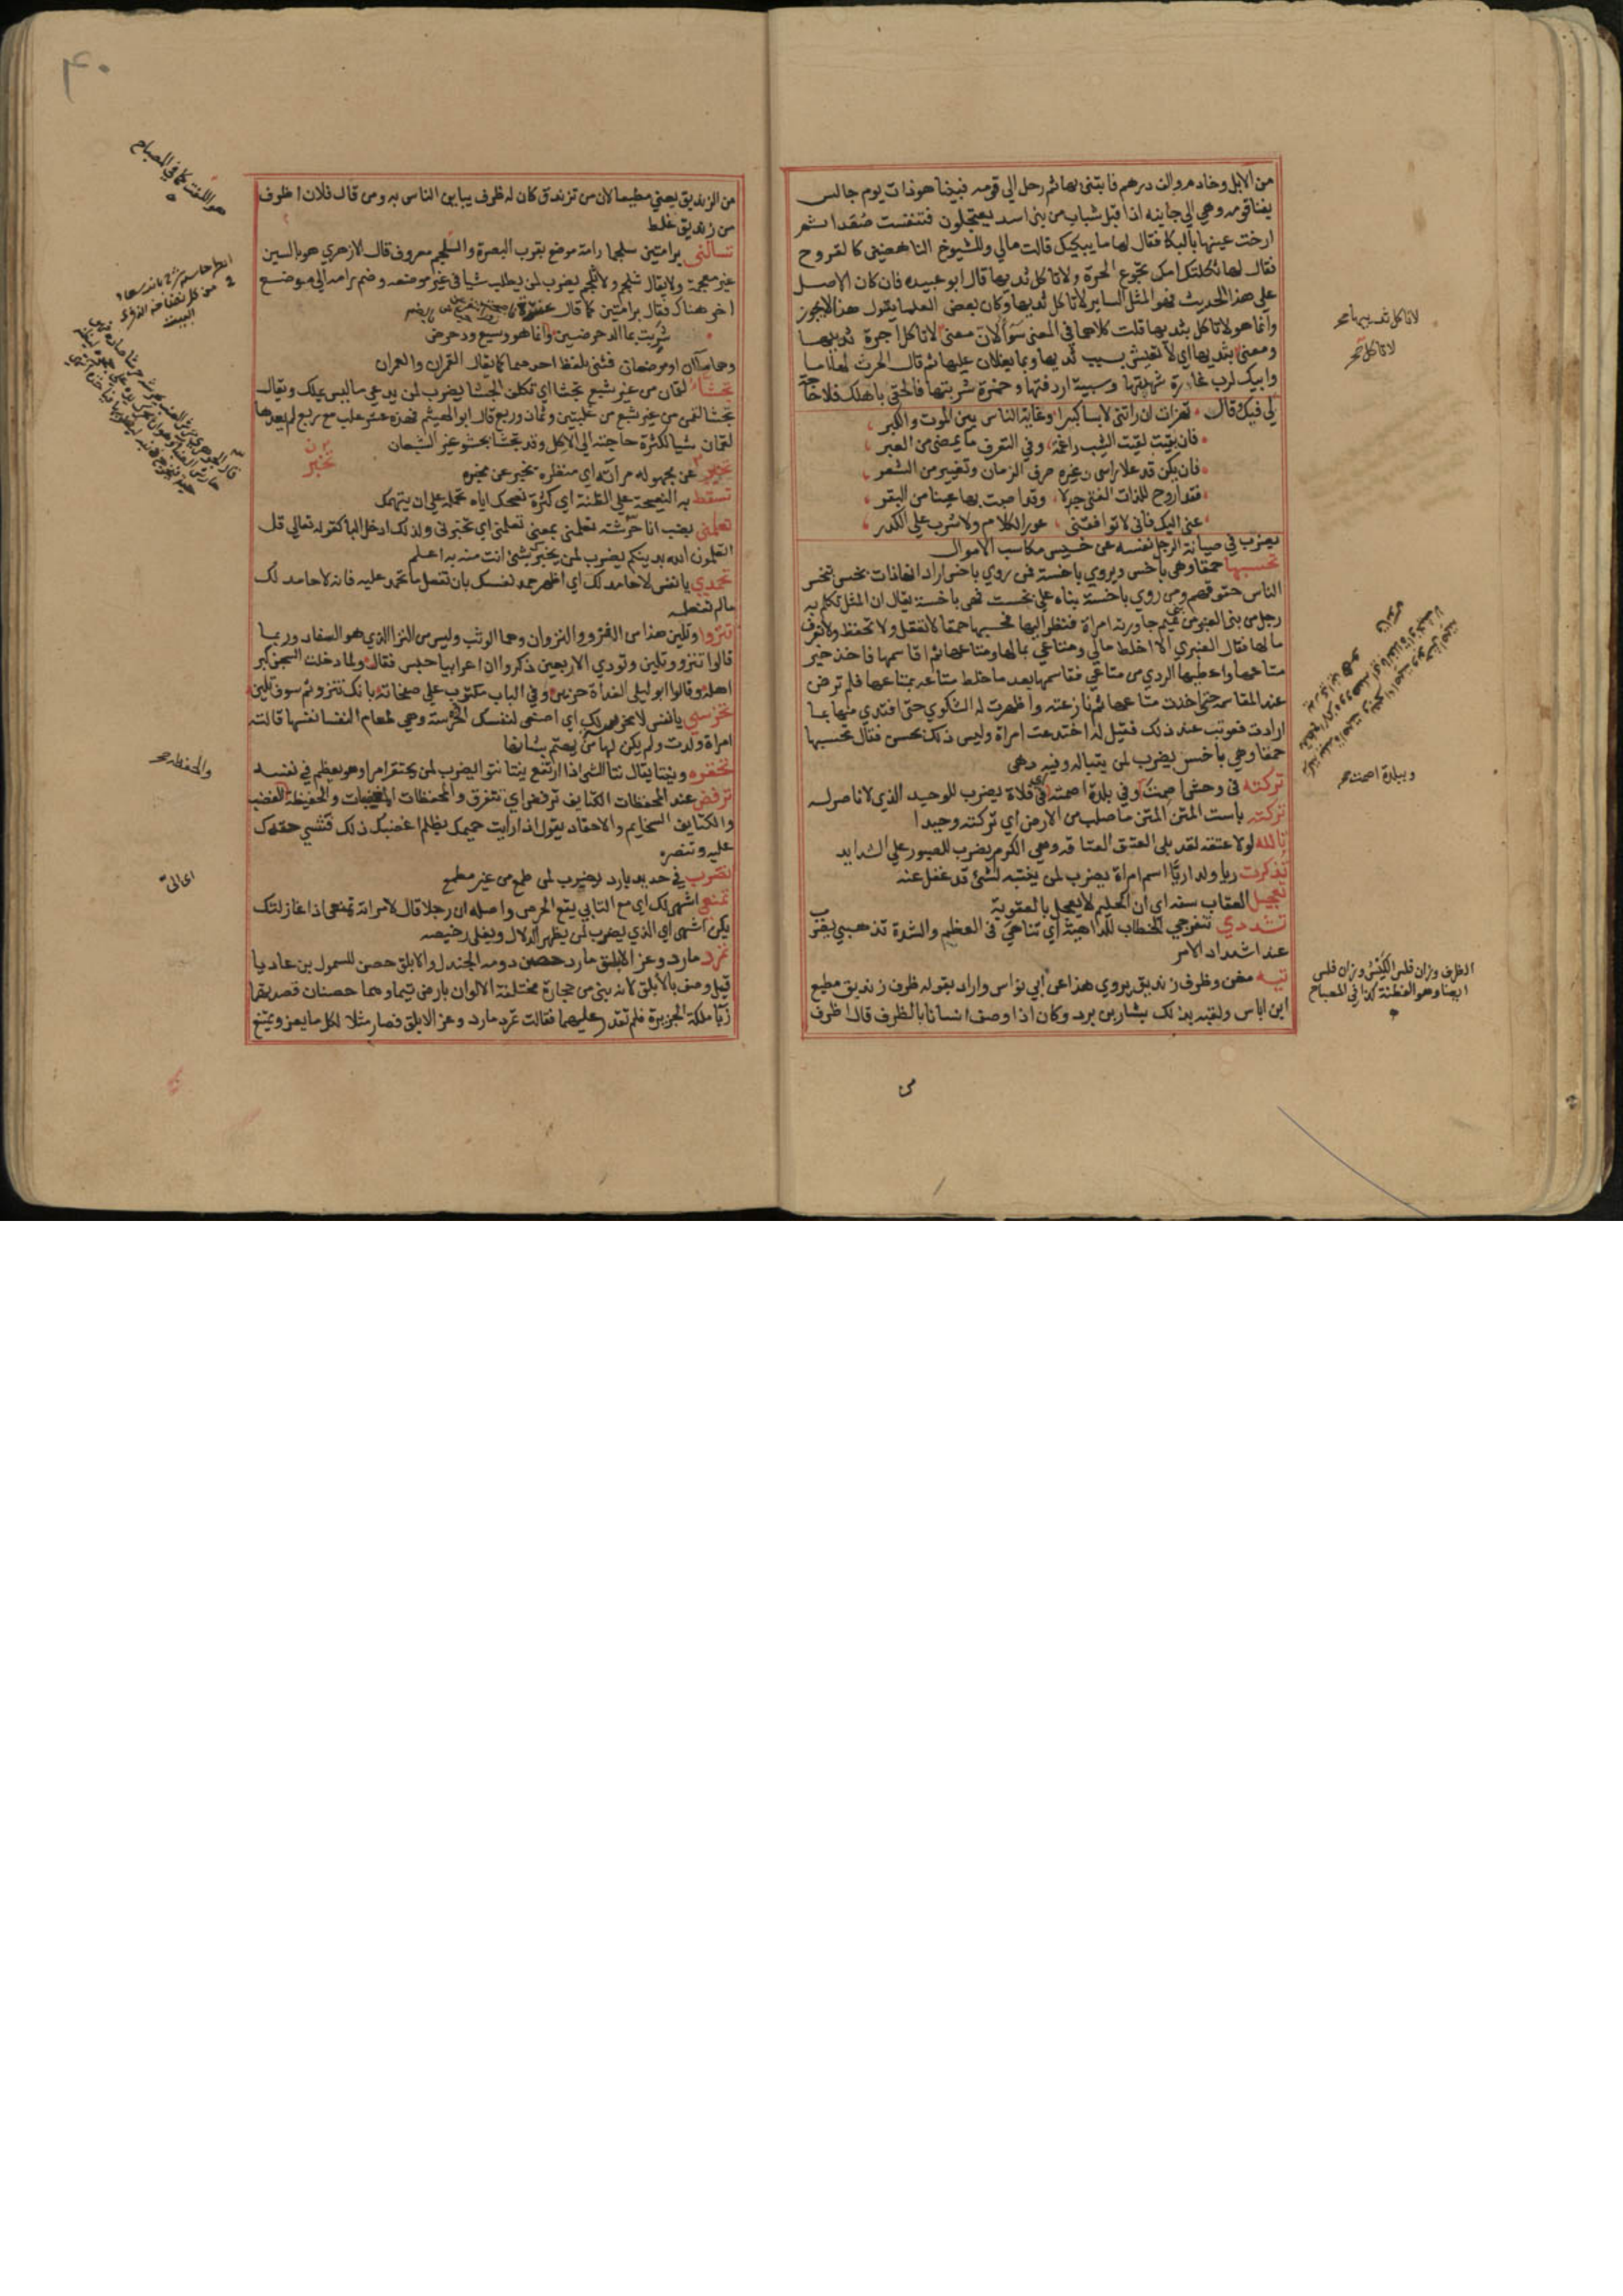 من الابل وخادم والف درهم فابتنى بها ثم رحل الى قومه فبينا هو ذات يوم جالس
بفنا قومه وهي الى جانبه اذ اقبل شباب من بنى اسد يعتجلون فتنفست صعدا ثم
ارخت عينها بالبكا فقال لها ما يبكيك قالت مالي وللشيوخ الناهضين كالفروح
فقال لها ثكلتك امك تجوع الحرة ولا تاكل ثدييها قال ابو عبيد فان كان الاصل
على هذا الحديث فهو المثل الساير لا تاكل ثدييها وكان بعض العلما يقول هذا لا يجوز
وانما هو لا تاكل بثدييها قلت كلاهما في المعنى سوآ لان معنى لا تاكل اجرة ثدييها
ومعنى بثدييها اى لا تعيش بسبب ثدييها وبما يغلان عليها ثم قال الحرث لها اما
وابيك لرب غارة شهدتها وسبية اردفتها وخمرة شربتها فالحقى باهلك فلا حاجة
لي فيك وقال تهزات ان راتنى لابسا كبرا وغاية الناس بين الموت والكبر
فان بقيت لقيت الشيب راغمة وفي التعرف ما يمضى من العبر
فان يكن قد علا راسى وغيره صرف الزمان وتغيير من الشعر
فقد اروح للذات الفتى جذلا وقد اصبت بها عينا من البقر
عنى اليك فانى لا توافقنى عور الكلام ولا شرب على الكدر
يضرب في صيانة الرجل نفسه عن خسيس مكاسب الاموال
تحسبها حمقا وهى باخس ويروى باخسة فمن روى باخس اراد انها ذات بخس تبخس
الناس حقوقهم ومن روى باخسة بناه على بخست فهى باخسة يقال ان المثل تكلم به
رجل من بنى العنبر من تميم جاورته امراة فنظر اليها فحسبها حمقا لا تعقل ولا تحفظ ولا تعرف
مالها فقال العنبري الا اخلط مالي ومتاعي بمالها ومتاعها ثم اقاسمها فاخذ خير
متاعها واعطيها الردي من متاعي فقاسمها بعد ما خلط متاعه بمتاعها فلم ترض
عند المقاسمة حتى اخذت متاعها ثم نازعته واظهرت له الشكوي حتى افتدي منها بما
ارادت فعوتب عند ذلك فقيل له اختدعت امراة وليس ذلك بحسن فقال تحسبها
حمقا وهي باخس يضرب لمن يتباله وفيه دهى
تركته فى وحش اصمت وفي بلدة اصمته اى فى فلاة يضرب للوحيد الذي لا ناصر له
تركته باست المتن المتن ما صلب من الارض اي تركته وحيدا
تالله لولا عتقه لقد بلى العتق العتاقه وهي الكرم يضرب للصبور على الشدايد
تذكرت ريا ولدا ريا اسم امراة يضرب لمن ينتبه لشئ قد غفل عنه
تعجيل العقاب سفه اي ان الحليم لا يعجل بالعقوبة
تشددي تنفرجي الخطاب للداهية اي تناهي فى العظم والشدة تذهبي يضرب
عند اشتداد الامر
تيه مغن وظرف زنديق يروي هذا عن ابي نواس واراد بقوله ظرف زنديق مطيع
ابن اياس ولقبه بذلك بشار بن برد وكان اذا وصف انسانا بالظرف قال اظرف
من
لا تاكل ثدييها صح
لا تاكل صح
وببلدة اصمت صح
الظرف وزان فلس الكيس وزان فلس
ايضا وهو الفطنة كذا في المصباح
من الزنديق يعني مطيعا لان من تزندق كان له ظرف يباين الناس به ومن قال فلان اظرف
من زنديق غلط
تسالنى برامتين سلجما رامة موضع بقرب البصرة والسلجم معروف قال الازهري هو بالسين
غير معجمة ولا يقال شلجم ولا ثلجم يضرب لمن يطلب شيا في غير موضعه وضم رامه الى موضع
اخر هناك فقال برامتين كما قال عنترة
شربت بما الدحرضين وانما هو وسيع ودحرض
وهما مآان او موضعان فثنى بلفظ احدهما كما يقال القمران والعمران
تجشا لقمان من غير شبع تجشا اي تكلف الجشا يضرب لمن يدعى ما ليس يملك ويقال
تجشا لقمن من غير شبع من علبتين وثمان وربع قال ابو الهيثم فهذه عشر علب مع ربع لم يعدها
لقمان شيا لكثرة حاجته الى الاكل وقد تجشا بحشو غير الشبعان
تخبر عن مجهوله مرآته اي منظره يخبر عن مخبره
تسقط به النصيحة على الظنة اي كثرة نصحك اياه تحمله على ان يتهمك
تعلمني بضب انا حرشته تعلمني بمعنى تعلمنى اي تخبرنى ولذلك ادخل البا كقوله تعالى قل
اتعلمون الله بدينكم يضرب لمن يخبرك بشئ انت منه به اعلم
تحمدي يا نفس لا حامد لك اي اظهر حمد نفسك بان تفعل ما تحمد عليه فانه لا حامد لك
مالم تفعله
تنزوا وتلين هذا من النزو والنزوان وهما الوثب وليس من النزا الذي هو السفاد وربما
قالوا تنزو وتلين وتودي الاربعين ذكروا ان اعرابيا حبس فقال ولما دخلت السجن كبر
اهله وقالوا ابو ليلى الغداة حزين وفي الباب مكتوب على صفحاته بانك تنزو ثم سوف تلين
تخرسي يا نفس لا مخرس لك اي اصنعى لنفسك الخرسة وهي طعام النفسا نفسها قالته
امراة ولدت ولم يكن لها من يهتم بشانها
تحقره وينتا يقال نتا الشئ اذا ارتفع ينتا نتوا يضرب لمن يحتقر امرا وهو يعظم في نفسه
ترفض عند المحفظات الكتايف ترفض اي تتفرق والمحفظات المغضبات والحفيظة الغضب
والكتايف السخايم والاحقاد يقول اذا رايت حميمك يظلم اغضبك ذلك فتنسي حقدك
عليه وتنصره
تضرب في حديد بارد يضرب لمن طمع من غير مطمع
تمنعي اشهى لك اي مع التابي يقع الحرص واصله ان رجلا قال لامراته تمنعى اذا غازلتك
يكن اشهى اي الذي يضرب لمن يظهر الدلال ويغلى رخيصه
تمرد مارد وعز الابلق مارد حصن دومة الجندل والابلق حصن للسمول بن عاديا
قيل وصف بالابلق لانه بني من حجارة مختلفة الالوان بارض تيما وهما حصنان قصدتهما
زبا ملكة الجزيرة فلم تقدر عليهما فقالت تمرد مارد وعز الابلق فصار مثلا لكل ما يعز ويمتنع
هو اللفت كما في المصباح
والحفظه صح